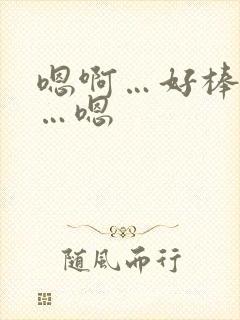 嗯啊…好棒
…嗯
随風而行